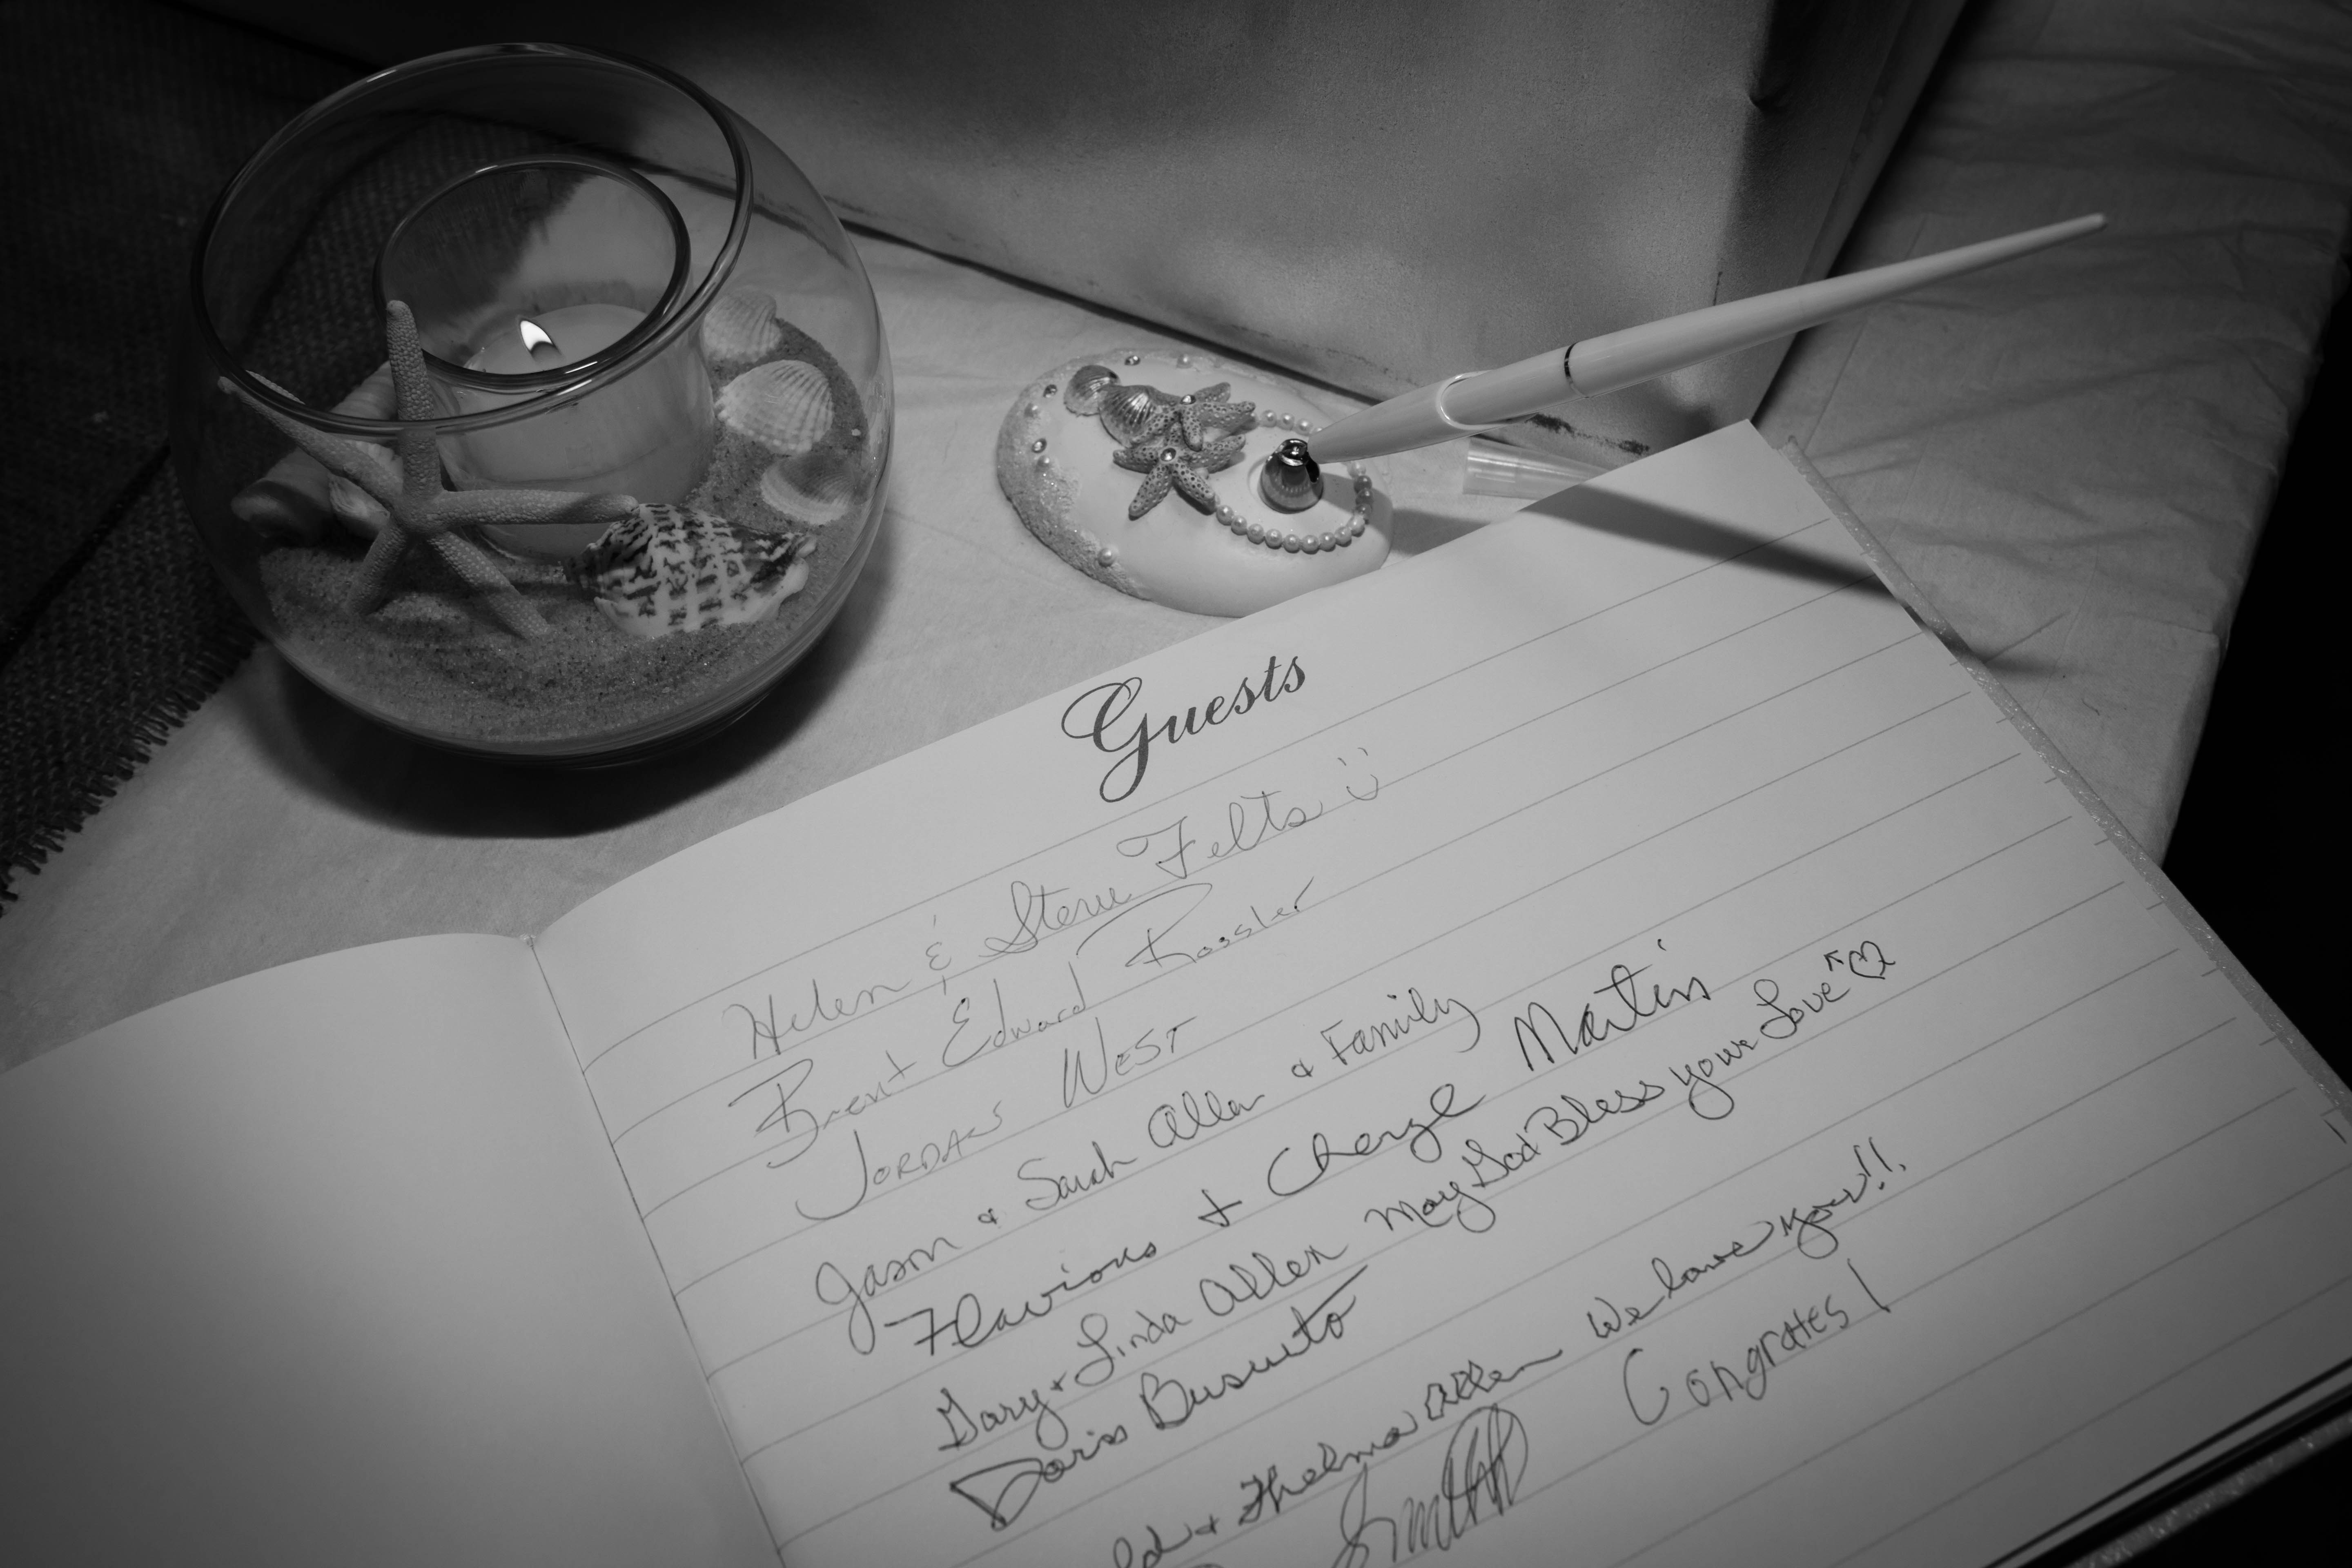 Guests
Helen & Steve Felts
Brent Edward Roosler
JORDAN WEST
Jason & Sarah Allen & Family
Flavious + Cheryl Martin
Gary + Linda Allen May God Bless your Love
Doris Busuito
& Thelma Allen We love you!!
Smith Congrates!